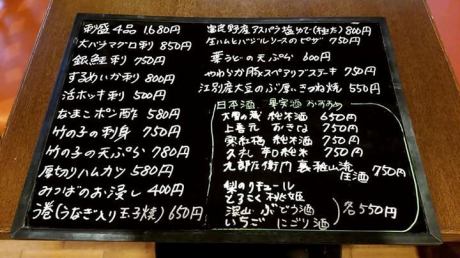 刺盛4品 1680円
大バチマグロ刺 850円
銀鮭刺 750円
するめいか刺 800円
活ホッキ刺 500円
なまこポン酢 580円
竹の子の刺身 750円
竹の子の天ぷら 780円
厚切りハムカツ 580円
みつばのお浸し 400円
う巻(うなぎ入り玉子焼) 650円
富良野産アスパラ塩ゆで 800円
生ハムとバジルソースのピザ 750円
の天ぷら 600円
やわらか豚スペアリブステーキ 750円
江別産大豆のぶ厚いきつね焼 550円
日本酒 果実酒 おすすめ
純米酒 650円
上喜元 おきな 750円
寒紅梅 純米酒 750円
久礼 辛口純米 750円
九郎左衛門 裏雅山流 750円
梨のリキュール
とろこく桃姫
深山ぶどう酒
いちごにごり酒
各550円